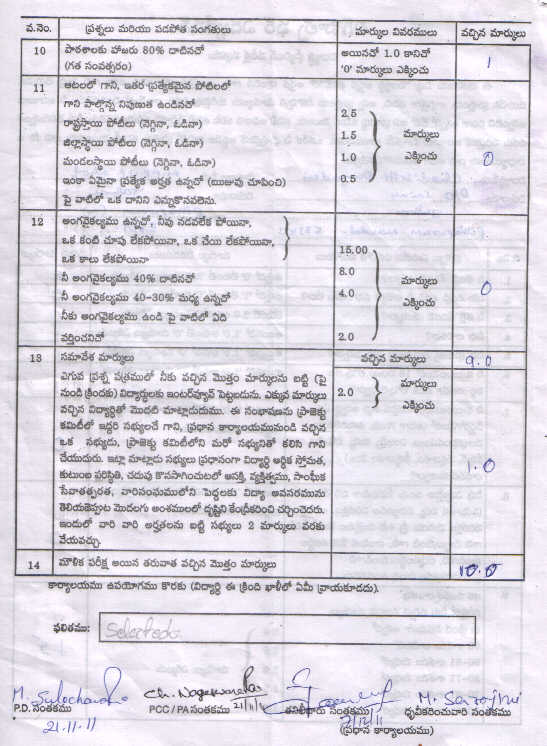 వ.నెం. ప్రశ్నలు మరియు పడపోత సంగతులు మార్కుల వివరములు వచ్చిన మార్కులు
10 పాఠశాలకు హాజరు 80% దాటినచో అయినచో 1.0 కానిచో 1
(గత సంవత్సరం) '0' మార్కులు ఎక్కించు
11 ఆటలలో గాని, ఇతర ప్రత్యేకమైన పోటిలలో
గాని పాల్గొన్న నిపుణుత ఉండినచో 2.5
రాష్ట్రస్తాయి పోటీలు (నెగ్గినా, ఓడినా)
జిల్లాస్థాయి పోటీలు (నెగ్గినా, ఓడినా) 1.5 మార్కులు
మండలస్థాయి పోటీలు (నెగ్గినా, ఓడినా) 1.0 ఎక్కించు 0
ఇంకా ఏమైనా ప్రత్యేక అర్హత ఉన్నచో (ఋజువు చూపించి) 0.5
పై వాటిలో ఒక దానిని ఎన్నుకొనవలెను.
12 అంగవైకల్యము ఉన్నచో, నీవు నడవలేక పోయినా,
ఒక కంటి చూపు లేకపోయినా, ఒక చేయి లేకపోయినా,
ఒక కాలు లేకపోయినా 15.00
నీ అంగవైకల్యము 40% దాటినచో 8.0 మార్కులు
నీ అంగవైకల్యము 40-30% మధ్య ఉన్నచో 4.0 ఎక్కించు 0
నీకు అంగవైకల్యము ఉండి పై వాటిలో ఏది
వర్తించనిచో 2.0
13 సమావేశ మార్కులు వచ్చిన మార్కులు 9.0
ఎగువ ప్రశ్న పత్రములో నీకు వచ్చిన మొత్తం మార్కులను బట్టి (పై మార్కులు
నుండి క్రిందకు) విద్యార్థులకు ఇంటర్‌వ్యూవ్ పెట్టబడును. ఎక్కువ మార్కులు 2.0 ఎక్కించు
వచ్చిన విద్యార్థితో మొదటి మాట్లాడుదుము. ఈ సంభాషణను ప్రాజెక్టు
కమిటీలో ఇద్దరి సభ్యులచే గాని, ప్రధాన కార్యాలయమునుండి వచ్చిన
ఒక సభ్యుడు, ప్రాజెక్టు కమిటీలోని మరో సభ్యునితో కలిసి గాని
చేయుదురు. ఇట్లా మాట్లాడు సభ్యులు ప్రధానంగా విద్యార్థి ఆర్థిక స్తోమత, 1.0
కుటుంబ పరిస్థితి, చదువు కొనసాగించుటలో ఆసక్తి, వ్యక్తిత్వము, సాంఘీక
సేవాతత్పరత, వారిసంఘములోని పెద్దలకు విద్యా అవసరమును
తెలియజెప్పుట మొదలగు అంశములలో దృష్టిని కేంద్రీకరించి చర్చించెదరు.
ఇందులో వారి వారి అర్హతలను బట్టి సభ్యులు 2 మార్కులు వరకు
వేయవచ్చు.
14 మౌళిక పరీక్ష అయిన తరువాత వచ్చిన మొత్తం మార్కులు 10.0
కార్యాలయము ఉపయోగము కొరకు (విద్యార్థి ఈ క్రింది ఖాళీలో ఏమీ వ్రాయకూడదు).
ఫలితము: Selected
M. Sulochana Ch. Nageswara Rao M. Sarojini
P.D. సంతకము PCC / PA సంతకము 21/11/11 ధృవీకరించువారి సంతకము
21.11.11 (ప్రధాన కార్యాలయం)